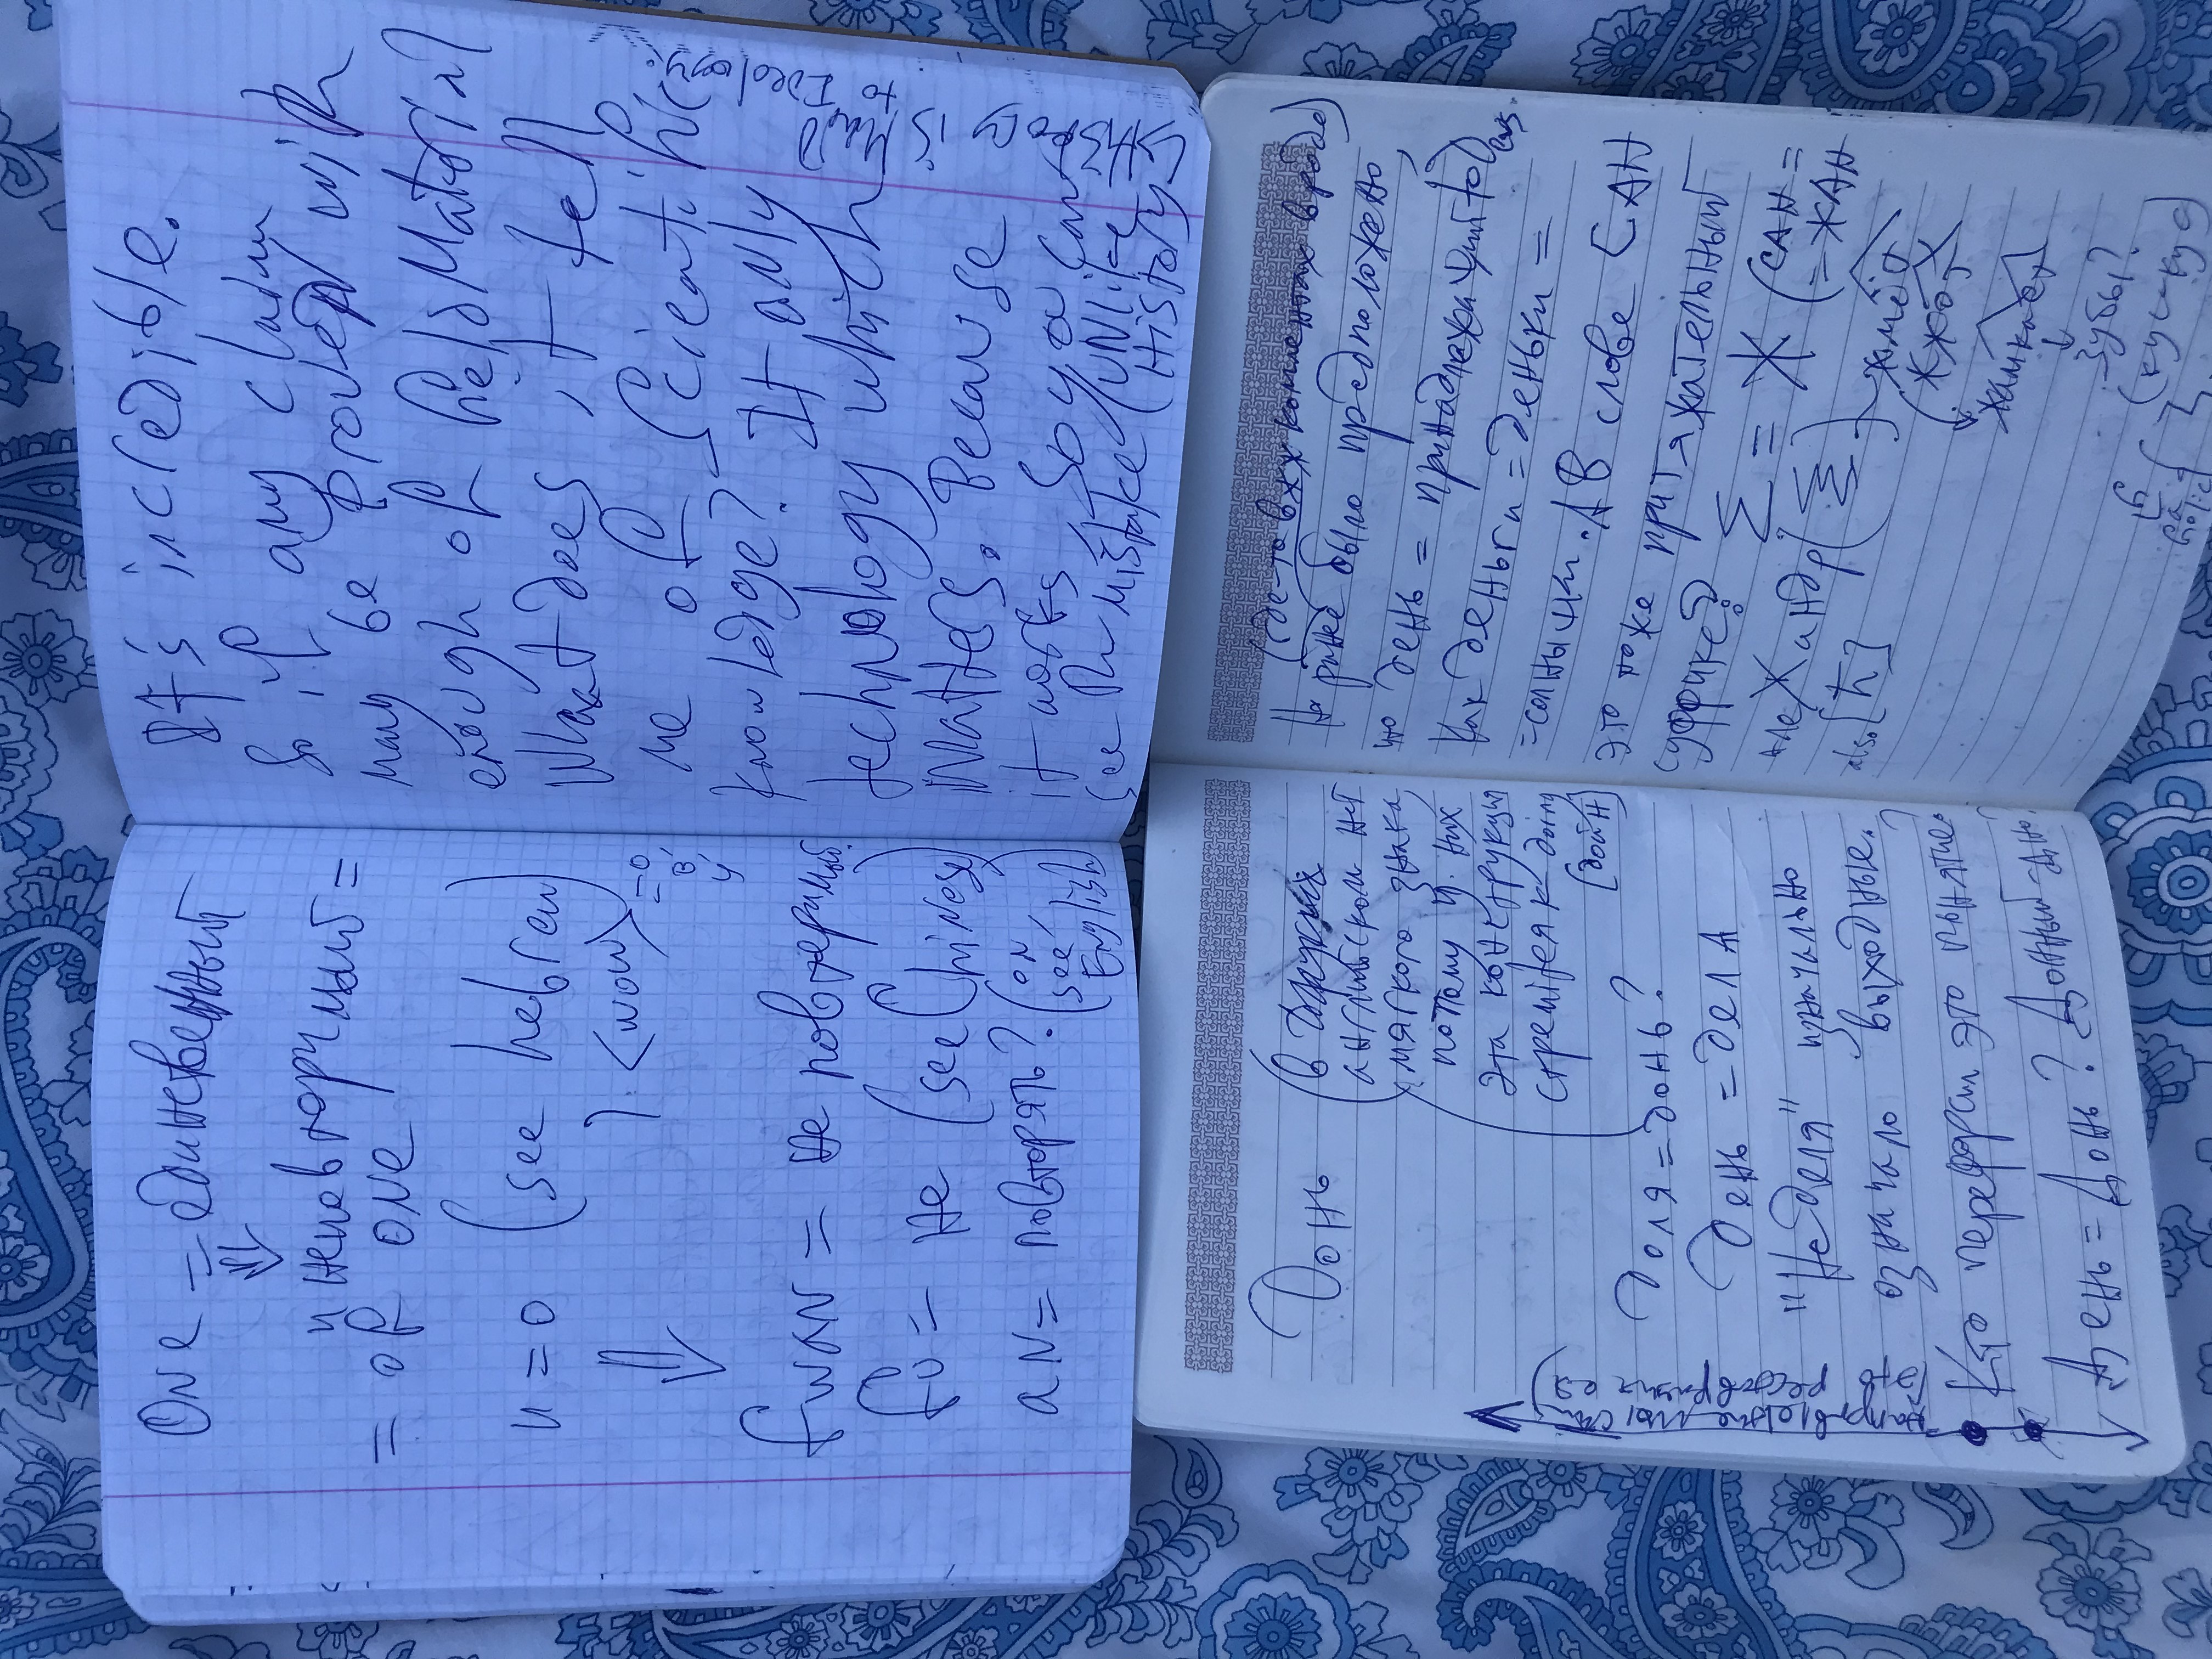 One = единственный
⇓
и неповторимый =
= of one
и = о (see hebrew)
? <wow> = о, в, у
fwan = не повторимый
fu = не (see Chinese)
an = повторять? (on, see English)
It's incredible.
So if any claim
may be proven with
enough of field Material
What does it tell
me of Scientific
knowledge? It only
technology which
Matters. Because
it works, So you can
see the mistake (UNlike
History)
History is
to Ideology.
Донь
(в
английском нет
мягкого знака,
потому у них
эта конструкция
стремится к doing
[дойн]
Доля = донь?
День = делА
"Неделя" изначально
означало выходные.
Кто переформил это понятие?
Дэнь = Донь?
(где-то в жж комментах вроде)
На ранее было предположено,
что День = принадлежащий to
Как Деньги = Деньки =
= солнышки. А В слове САН
это тоже притяжательный
суффикс?
Σ = Ж (САН =
= ЖАН
алеЖандр (Σ)
also [ħ]
жмёт
жжёт
жамкает
↓
зубы?
(кусь-кус)